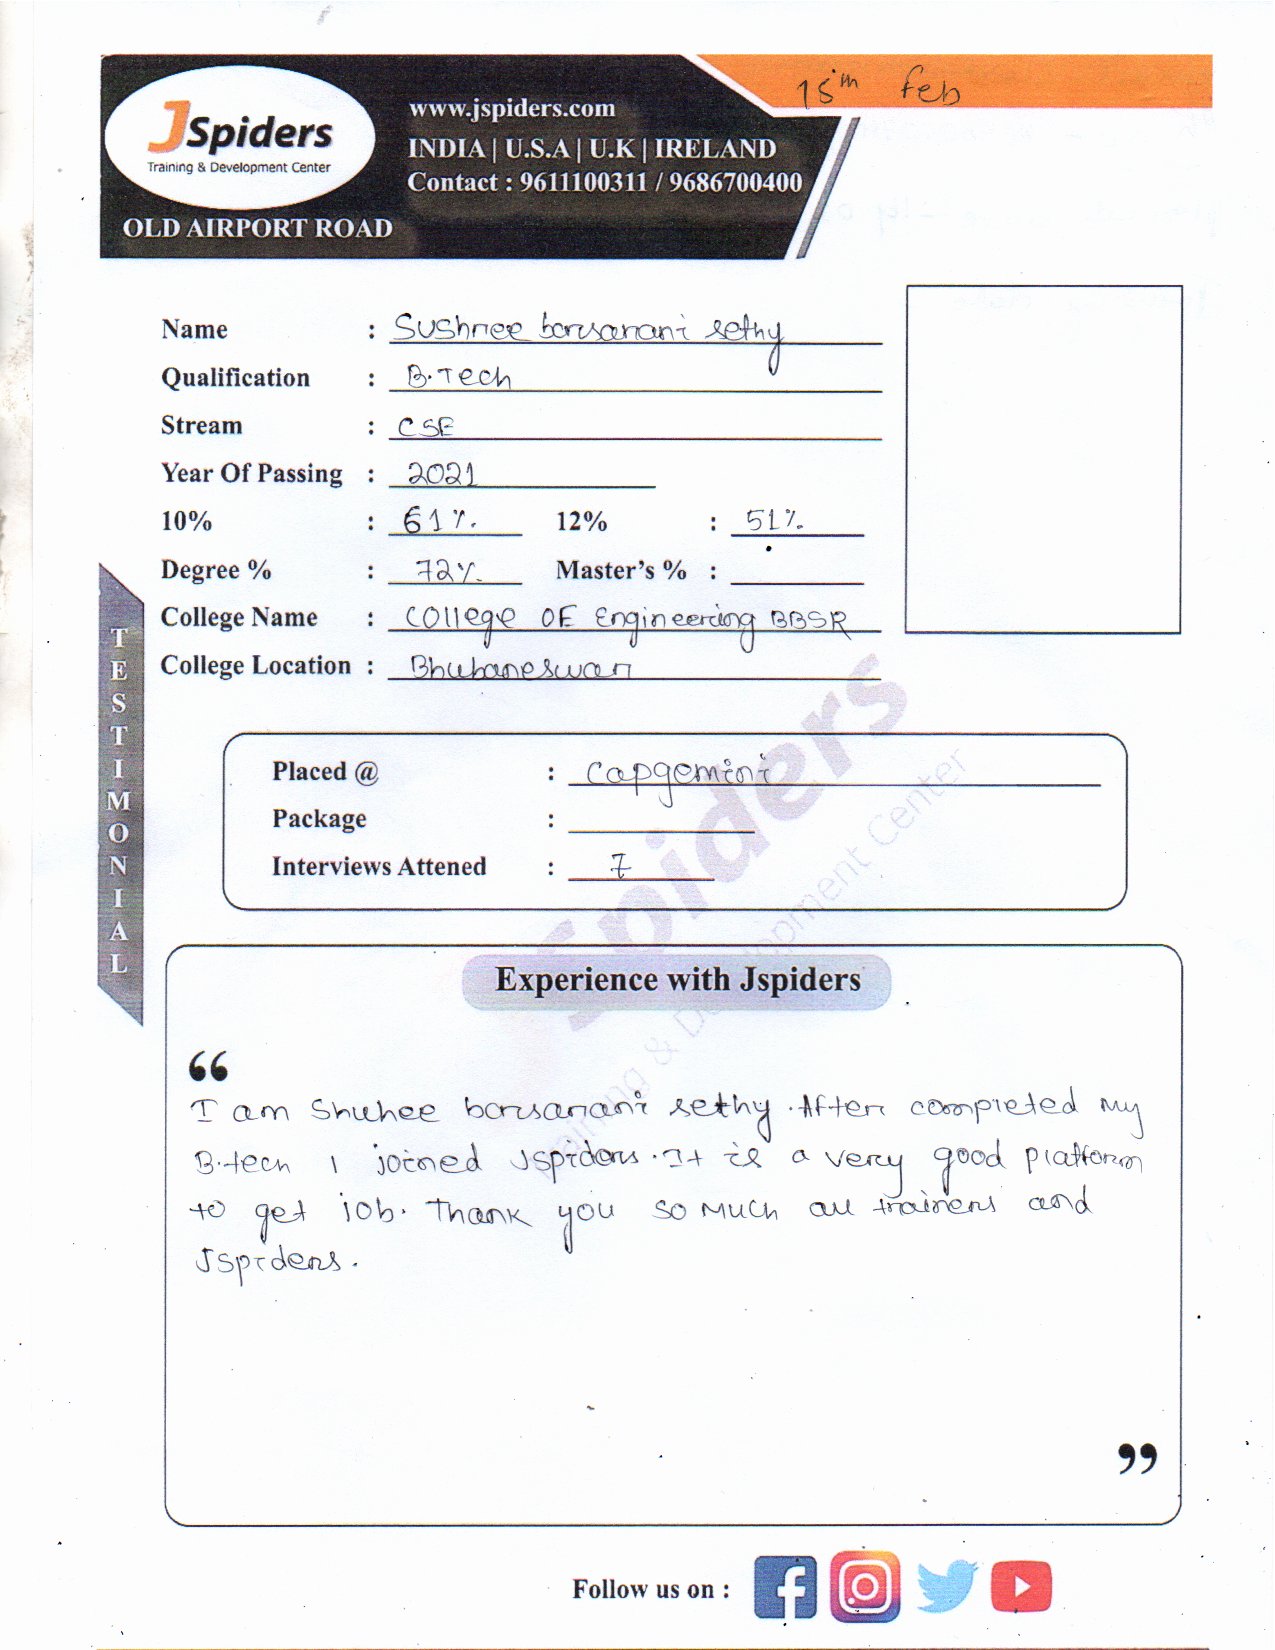 15th Feb
JSpiders
Training & Development Center
OLD AIRPORT ROAD
www.jspiders.com
INDIA | U.S.A | U.K | IRELAND
Contact : 9611100311 / 9686700400
Name : Sushree barsarani sethy
Qualification : B.Tech
Stream : CSE
Year Of Passing : 2021
10% : 61%. 12% : 51%.
Degree % : 72%. Master's % :
College Name : College OF Engineering BBSR
College Location : Bhubaneswar
TESTIMONIAL
Placed @ : Capgemini
Package :
Interviews Attened : 7
Experience with Jspiders
“
I am Shuhee barsarani sethy. After completed my
B.tech I joined Jspiders. It is a very good platform
to get job. Thank you so much all trainers and
Jspiders.
”
Spiders
Training & Development Center
Follow us on :